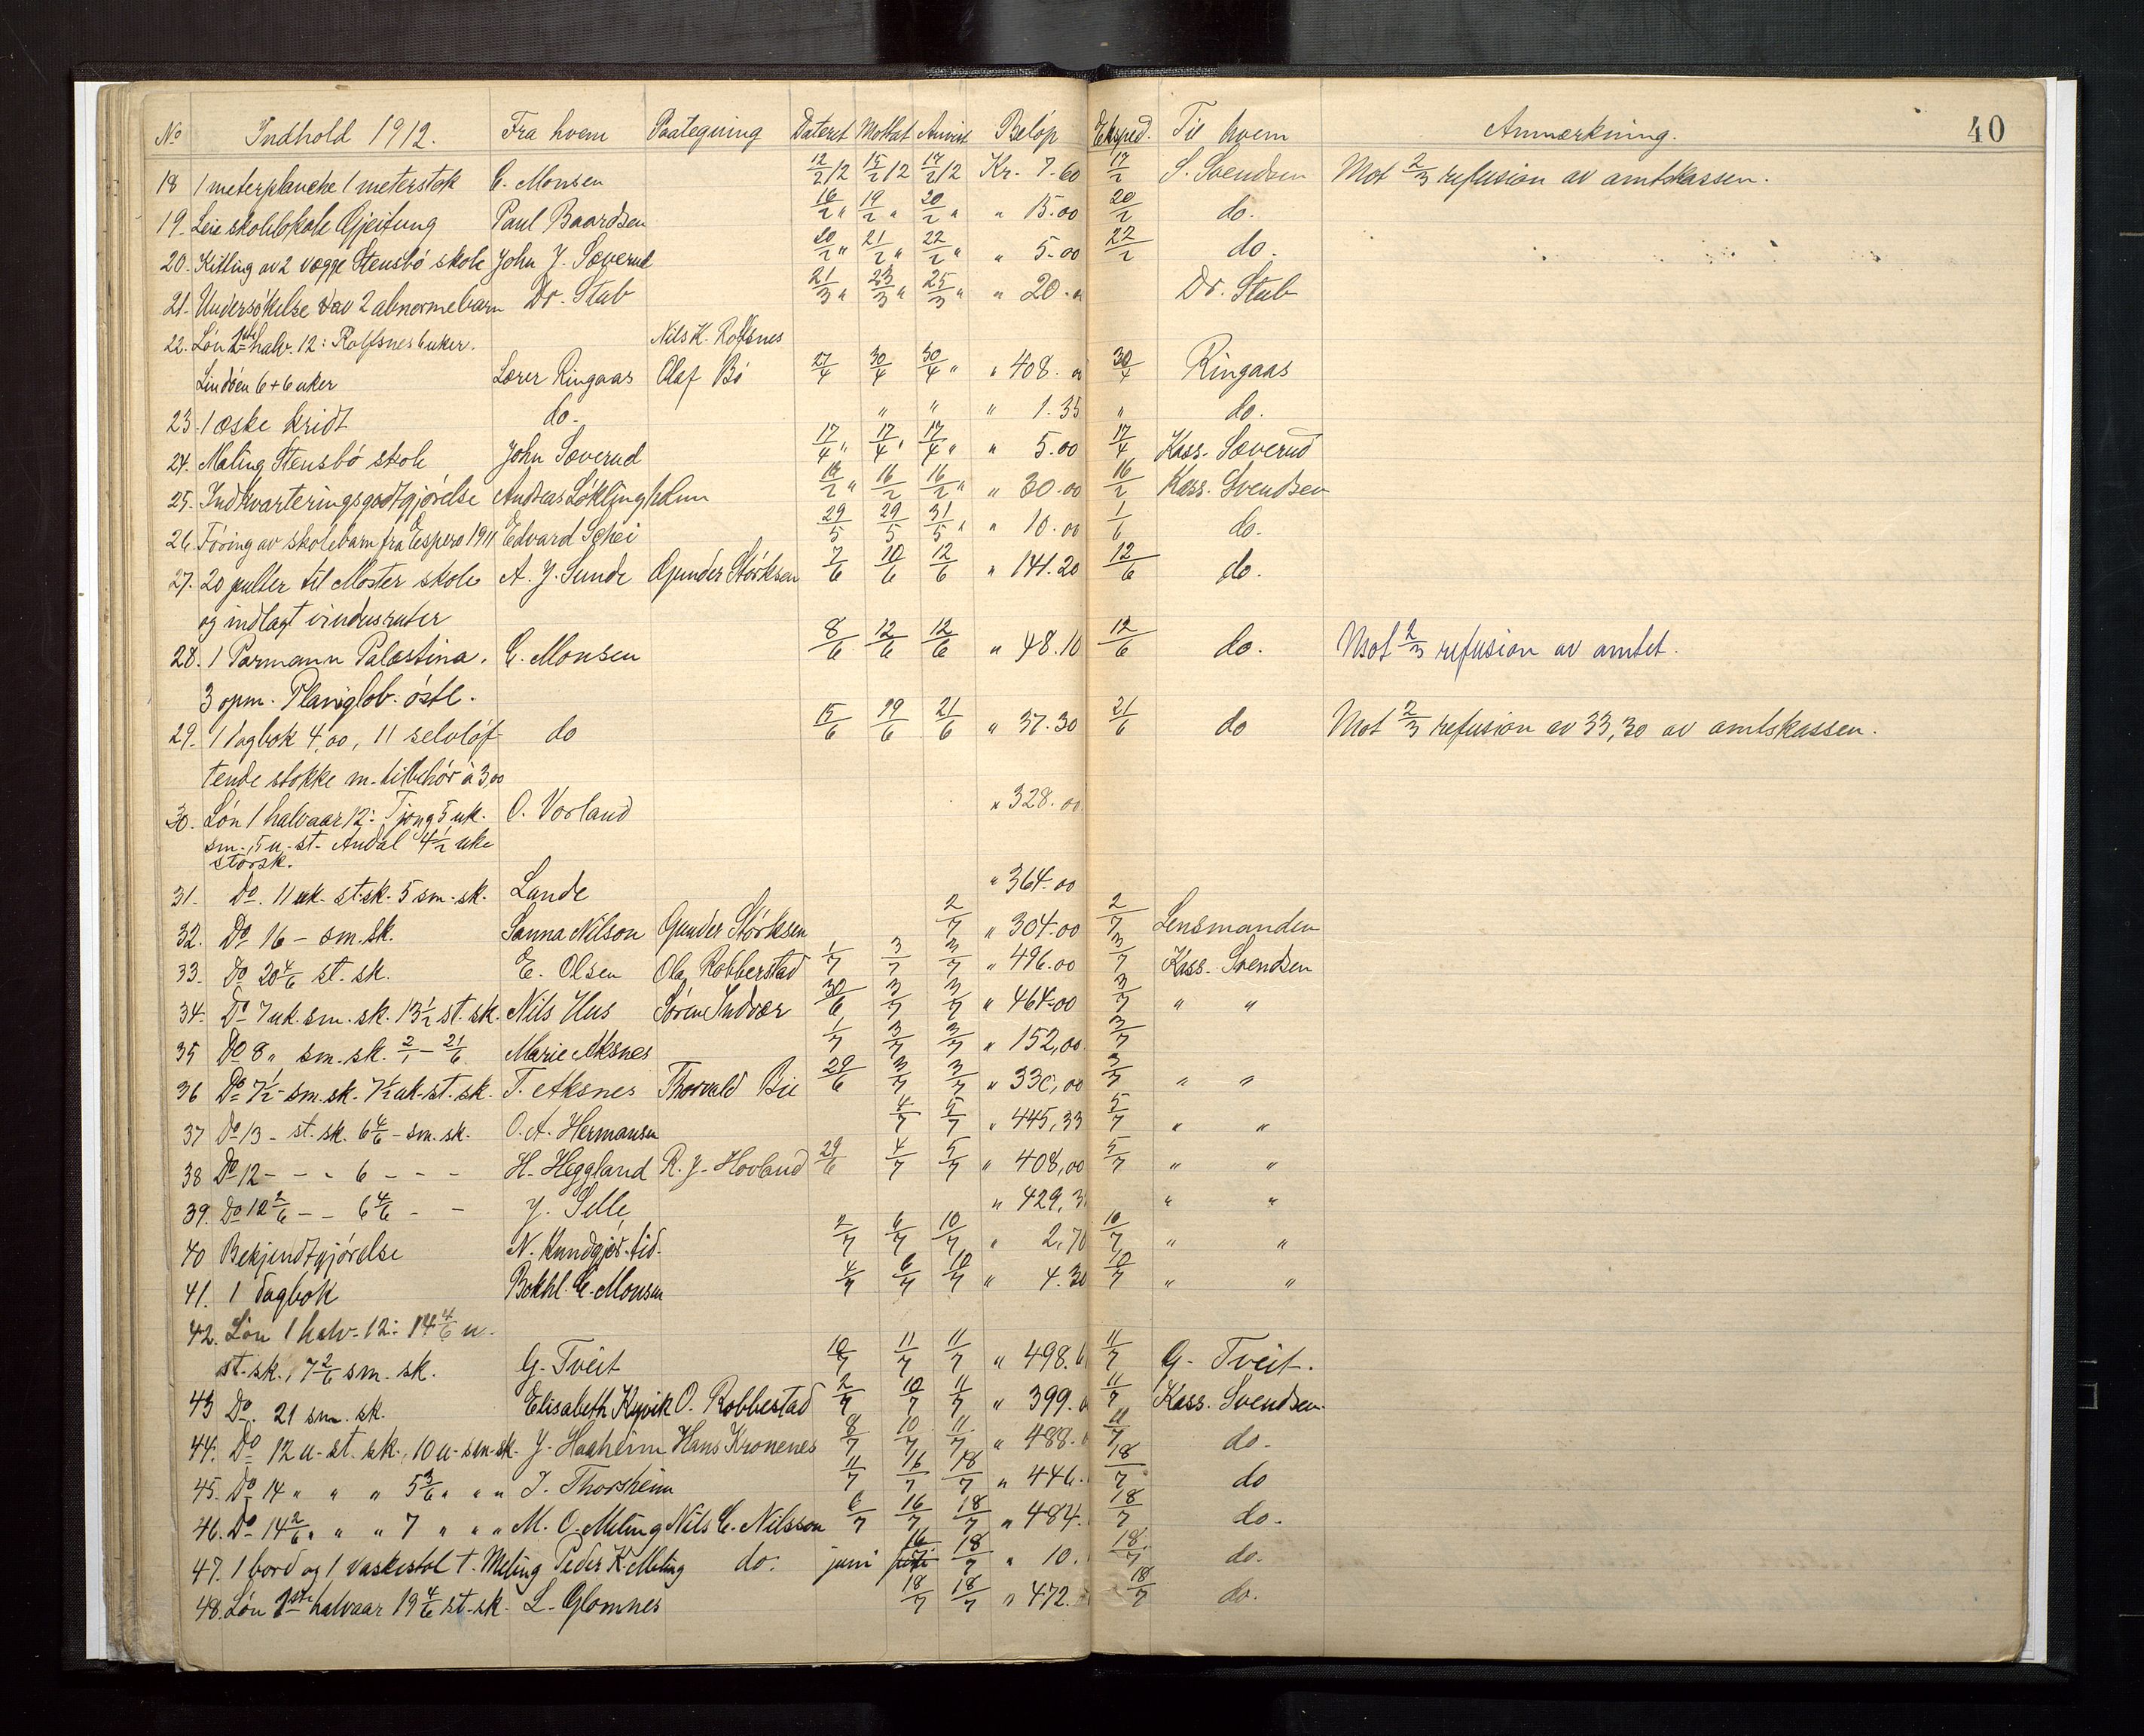 40
No Indhold 1912. Fra hvem Paategning Datert Mottat Anvist Beløp Eksped. Til hvem Anmerkning.
18 1 meterplanche 1 meterstok E. Monsen 12/2 12 15/2 12 17/2 12 Kr. 7.60 17/2 S. Svendsen Mot 2/3 refusion av amtskassen.
19. Leie skolelokale Gjeitung Paul Baardsen 16/2 " 19/2 " 20/2 " " 15.00 20/2 do.
20. Kitting av 2 vægge Stensbø skole John J. Sæverud 20/2 " 21/2 " 22/2 " " 5.00 22/2 do.
21. Undersøkelse av 2 abnorme barn Dr. Stub 21/3 " 23/3 " 25/3 " " 20. " Dr. Stub
22. Løn 1ste halv. 12: Rolfsnes 6 uker. Nils K. Rolfsnes
Lindøen 6+6 uker Lærer Ringaas Olaf Bø 27/4 30/4 30/4 " " 408. " 30/4 Ringaas
23. 1 æske kridt do. " " " 1.35 " do.
24. Maling Stensbø skole John Sæverud 17/4 " 17/4 " 17/4 " " 5.00 17/4 Kass. Sæverud
25. Indkvarteringsgodtgjørelse Andreas Løklingholm 16/2 " 16/2 " " 30.00 16/2 Kass. Svendsen
26. Føring av skolebarn fra Espevæ 1911 Edvard Schei 29/5 29/5 31/5 " " 10.00 1/6 do.
27. 20 pulter til Moster skole A. J. Sunde Gunder Størksen 7/6 10/6 12/6 " 141.20 12/6 do.
og indlagt vindusruter
28. 1 Parmann Palæstina. E. Monsen 8/6 12/6 12/6 " 48.10 12/6 do. Mot 2/3 refusion av amtet.
3 opm. Planiglob. østl.
29. 1 dagbok 4,00, 11 selvløf- do 15/6 19/6 21/6 " 37.30 21/6 do Mot 2/3 refusion av 33,30 av amtskassen.
tende stokke m. tilbehør à 3,00
30. Løn 1 halvaar 12: Tjong 5 uk. O. Vorland " 328.00
sm., 5 u. st. Andal 4 1/2 uke
storsk.
31. Do. 11 uk. st.sk. 5 sm. sk. Lande " 364.00
32. Do 16 - sm. sk. Sanna Nilson Gunder Størksen 2/7 " 304.00 2/7 Lensmanden
33. Do 20 4/6 st. sk. E. Olsen Ola Robberstad 1/7 3/7 3/7 " 496.00 3/7 Kass. Svendsen
34. Do 7 uk. sm. sk. 13 1/2 st. sk. Nils Hus Søren Indvær 30/6 3/7 3/7 " 464.00 3/7 " "
35 Do 8 " sm. sk. 2/1 - 21/6 Marie Aksnes 1/7 3/7 3/7 " 152,00 3/7
36 Do 7 1/2 - sm. sk. 7 1/2 uk. st. sk. T. Aksnes Thorvald Bie 29/6 3/7 3/7 " 330,00 3/7 " "
37 Do 13 - st. sk. 6 4/6 - sm. sk. O. A. Hermansen 4/7 5/7 " 445,33 5/7 " "
38 Do 12 - - - 6 - - - H. Heggland R. J. Hovland 29/6 4/7 5/7 " 408,00 5/7 " "
39. Do 12 2/6 - - 6 4/6 - - J. Selle " 429,3 " "
40 Bekjendtgjørelse N. Kundgjør. tid. 2/7 6/7 10/7 " 2,70 10/7 " "
41. 1 dagbok Bokhl. E. Monsen 4/7 6/7 10/7 " 4.30 10/7 " "
42. Løn 1 halv. 12: 14 4/6 u.
st. sk., 7 2/6 sm. sk. G. Tveit 10/7 11/7 11/7 " 498. 11/7 G. Tveit.
43 Do. 21 sm. sk. Elisabeth Kyvik O. Robbestad 2/7 10/7 11/7 " 399. 11/7 Kass. Svendsen.
44. Do 12 u. st. sk., 10 u. sm. sk. J. Haaheim Hans Kronenes 8/7 10/7 11/7 " 488. 11/7 do.
45. Do 14 " " " 5 3/6 " " " J. Thorsheim 11/7 16/7 18/7 " 446. 18/7 do
46. Do 14 2/6 " " " 7 " " " M. O. Meling Nils E. Nilsson 6/7 16/7 18/7 " 484. 18/7 do.
47. 1 bord og 1 vaskestol t. Meling Peder K. Meling do. juni 16 18/7 " 10. 18/7 do.
48. Løn 1ste halvaar 19 4/6 st. sk. L. Glomnes 18/7 18/7 " 472. 18/7 do.